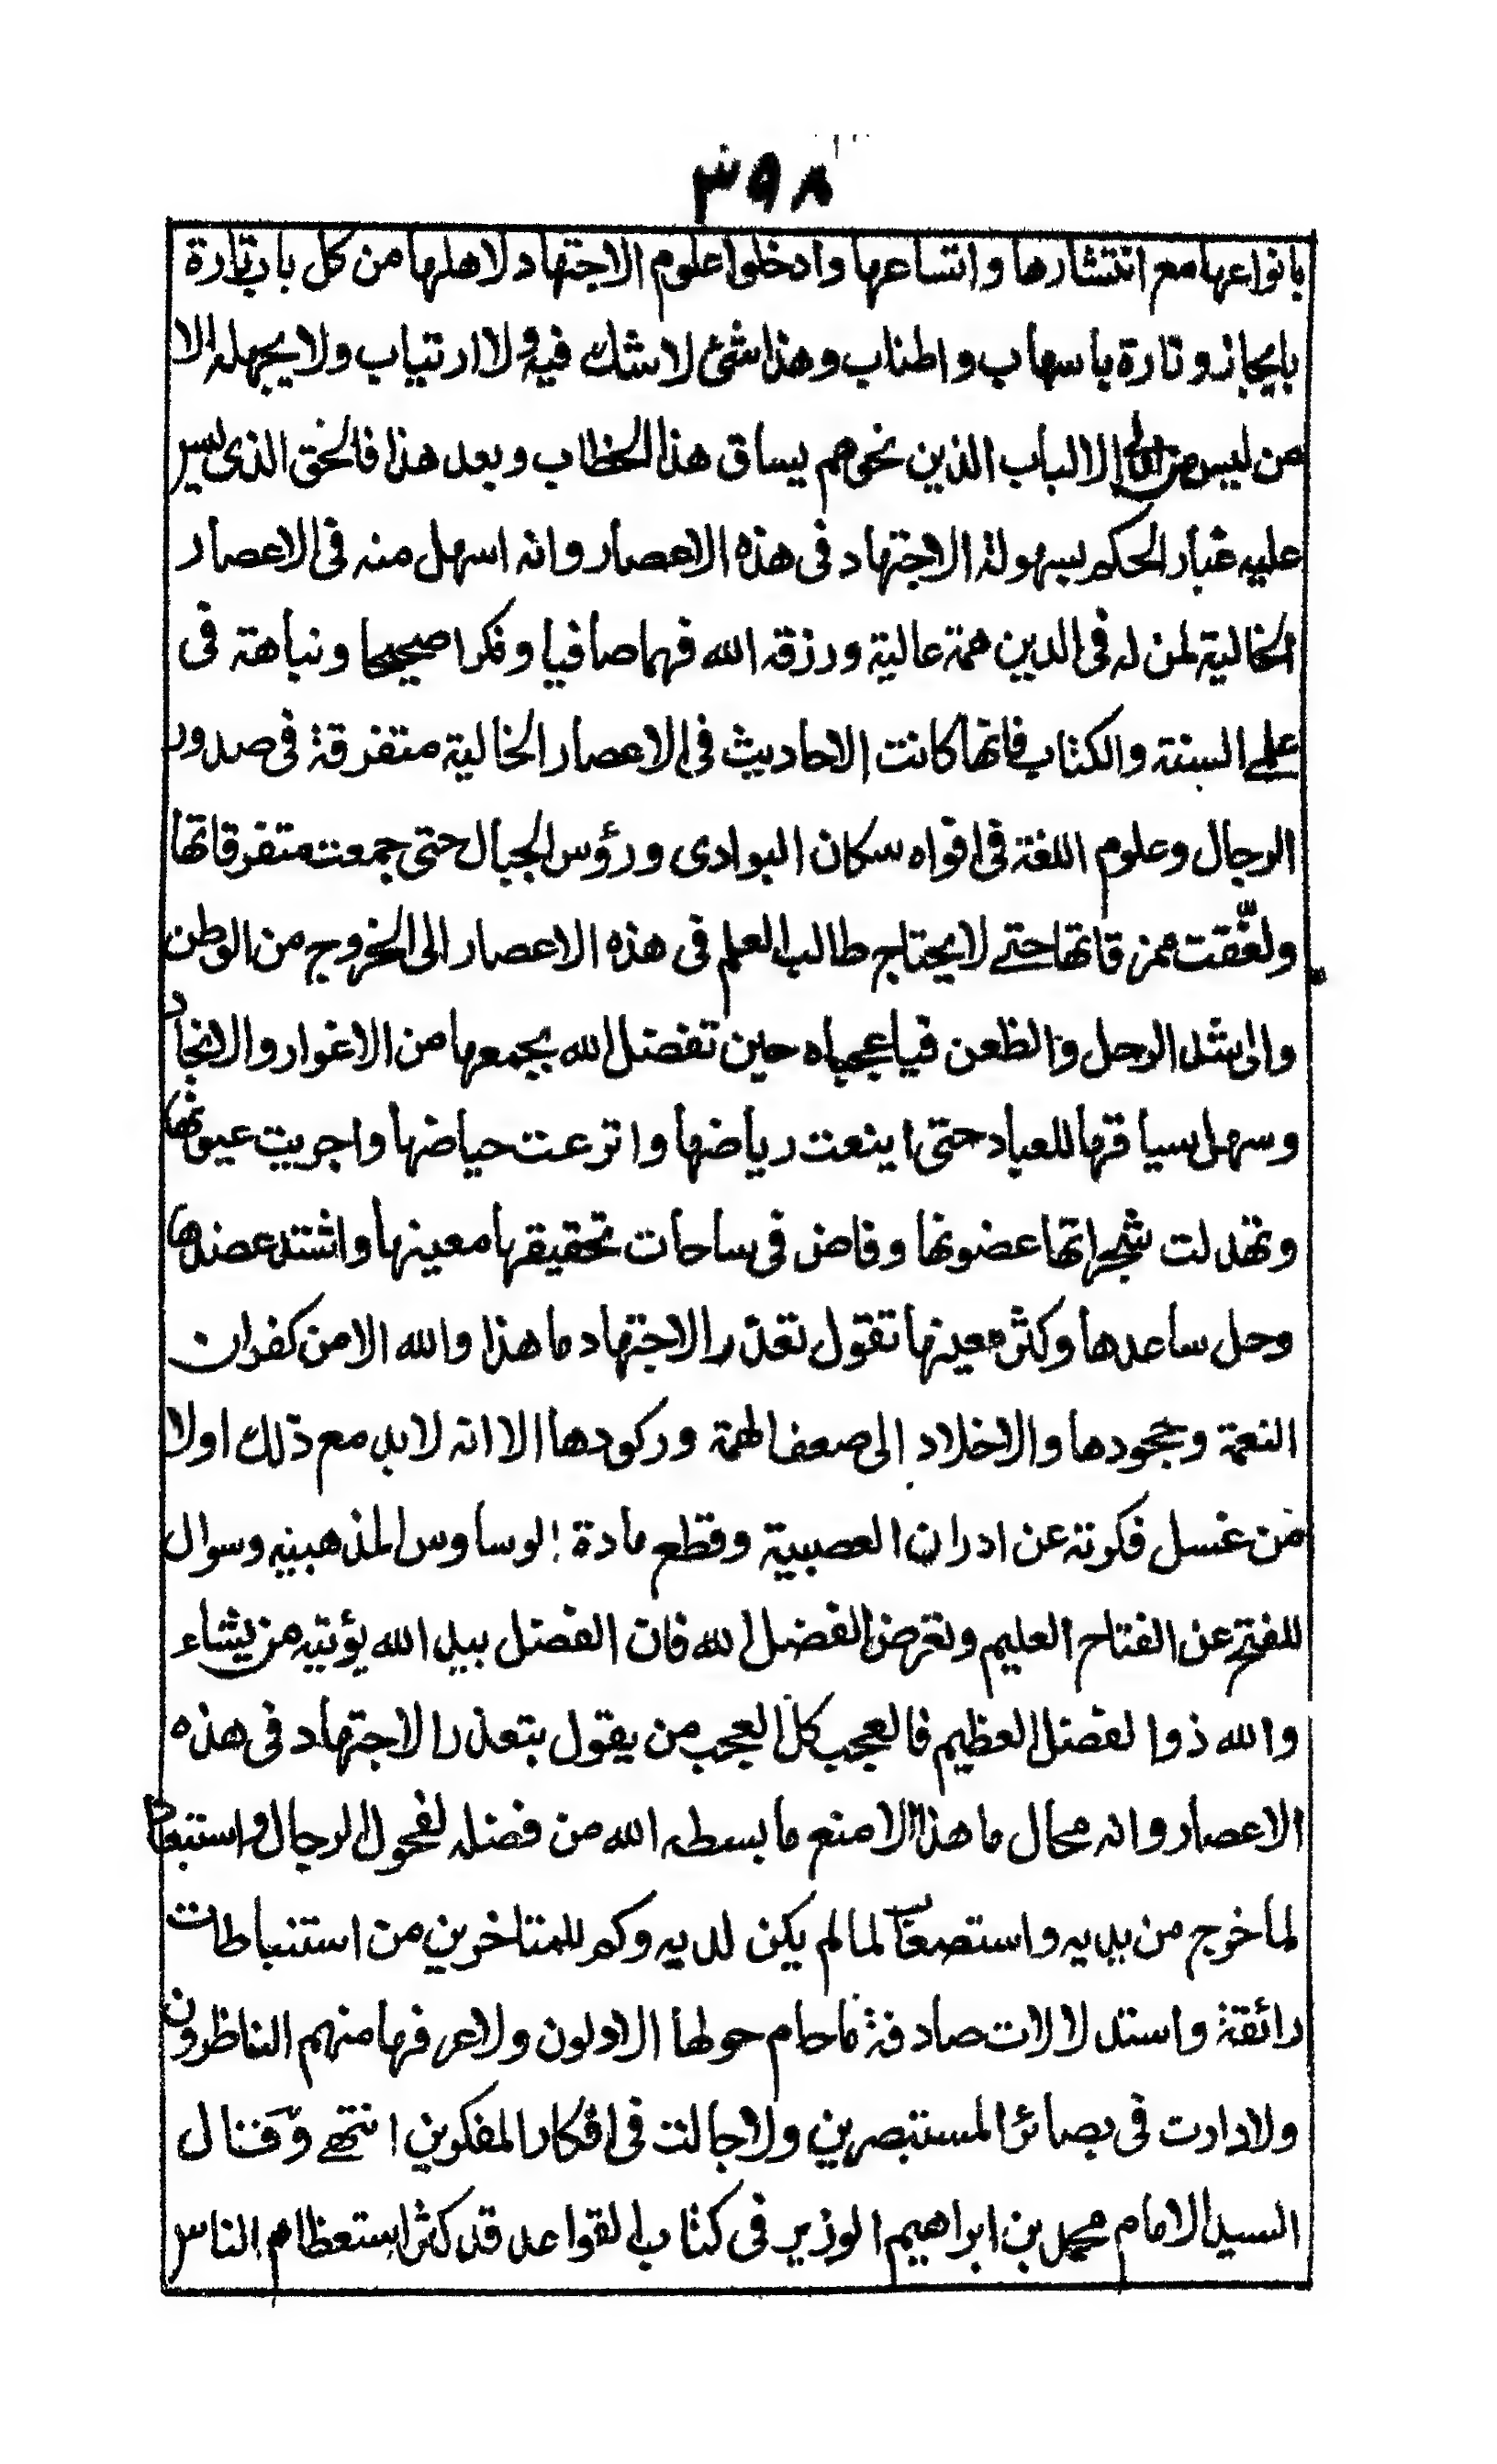 ٣٩٨
بانواعها مع انتشارها واتساعها وادخلوا علوم الاجتهاد لاهلها من كل باب تارة
بايجاز وتارة باسهاب واطناب وهذا شئ لا شك فيه ولا ارتياب ولا يجهله الا
من ليس من اولى الالباب الذين نحوهم يساق هذا الخطاب وبعد هذا فالحق الذى ليس
عليه غبار الحكم بسهولة الاجتهاد فى هذه الاعصار وانه اسهل منه فى الاعصار
الخالية لمن له فى الدين همة عالية ورزقه الله فهما صافيا وفكرا صحيحا ونباهة فى
علمے السنة والكتاب فانها كانت الاحاديث فى الاعصار الخالية متفرقة فى صدور
الرجال وعلوم اللغة فى افواه سكان البوادى ورؤس الجبال حتى جمعت متفرقاتها
ولفّقت ممزقاتها حتے لا يحتاج طالب العلم فى هذه الاعصار الى الخروج من الوطن
والى شد الرحل والظعن فياعجباه حين تفضل الله بجمعها من الاغوار والانجاد
وسهل سياقها للعباد حتى اينعت رياضها واترعت حياضها واجريت عيونها
وتهدلت شجراتها غضونها وفاض فى ساحات تحقيقها معينها واشتد عضدها
وحل ساعدها وكثر معينها تقول تعذر الاجتهاد ما هذا والله الا من كفران
النعمة وجحودها والاخلاد الى ضعف الهمة وركودها الا انه لابد مع ذلك اولا
من غسل فكرته عن ادران العصبية وقطع مادة الوساوس المذهبيه وسوال
للفتح عن الفتاح العليم وتعرض الفضل الله فان الفضل بيد الله يؤتيه من يشاء
والله ذوا لفضل العظيم فالعجب كل العجب من يقول بتعذر الاجتهاد فى هذه
الاعصار وانه محال ما هذا الا منع ما بسطه الله من فضله لفحول الرجال واستبعاد
لما خرج من يديه واستصعاب لما لم يكن لديه وكم للمتاخرين من استنباطات
رائقة واستدلالات صادقة ما حام حولها الاولون ولا عرفها منهم الناظرون
ولا دارت فى بصائر المستبصرين ولا جالت فى افكار المفكرين انتهے وقال
السيد الامام محمد بن ابراهيم الوزير فى كتاب القواعد قد كثر استعظام الناس